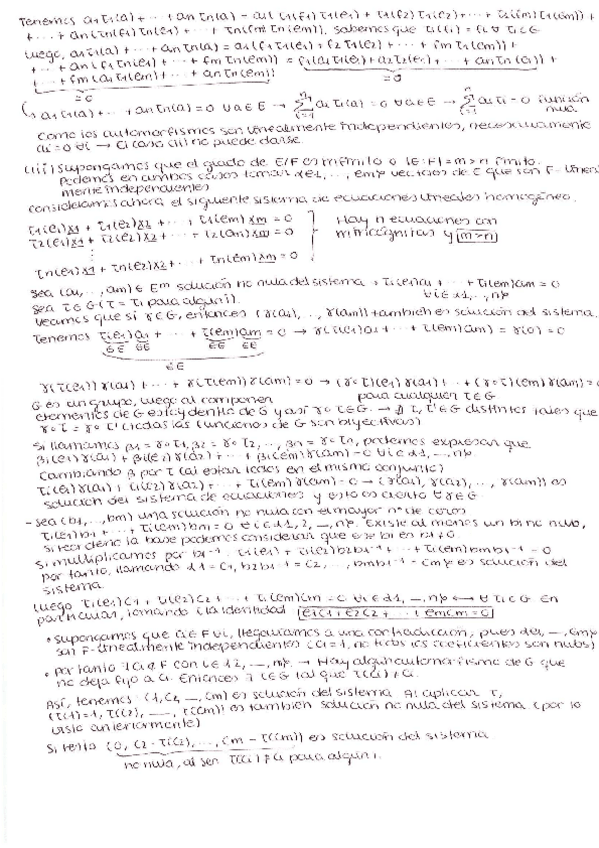 Tenemos a₁τ₁(a) + ··· + anτn(a) = a₁(τ₁(f₁)τ₁(e₁) + τ₁(f₂)τ₁(e₂) + ··· + τ₁(fm)τ₁(em)) +
+ ··· + an(τn(f₁)τn(e₁) + ··· + τn(fm)τn(em)), sabemos que τi(fi) = fi ∀ τi∈G
Luego, a₁τ₁(a) + ··· + anτn(a) = a₁(f₁τ₁(e₁) + f₂τ₁(e₂) + ··· + fmτ₁(em)) +
+ ··· + an(f₁τn(e₁) + ··· + fmτn(em)) = f₁(a₁τ₁(e₁) + a₂τ₂(e₁) + ··· + anτn(e₁)) +
+ ··· + fm(a₁τ₁(em) + ··· + anτn(em)) =0
=0
a₁τ₁(a) + ··· + anτn(a) = 0 ∀a∈E → Σ aiτi(a) = 0 ∀a∈E → Σ aiτi = 0 función nula
Como los automorfismos son linealmente independientes, necesariamente
ai = 0 ∀i → El caso (ii) no puede darse
(iii) Supongamos que el grado de E/F es infinito o [E:F] = m > n finito.
Podemos en ambos casos tomar {e₁, ..., em} vectores de E que son F-lineal-
mente independientes
Consideramos ahora el siguiente sistema de ecuaciones lineales homogéneo.
τ₁(e₁)x₁ + τ₁(e₂)x₂ + ··· + τ₁(em)xm = 0
τ₂(e₁)x₁ + τ₂(e₂)x₂ + ··· + τ₂(em)xm = 0
Hay n ecuaciones con
m incógnitas y m>n
τn(e₁)x₁ + τn(e₂)x₂ + ··· + τn(em)xm = 0
Sea (a₁, ..., am) ∈ Eᵐ solución no nula del sistema → τi(e₁)a₁ + ··· + τi(em)am = 0
∀i∈{1, ..., n}
Sea τ∈G (τ = τi para algún i).
Veamos que si γ∈G, entonces (γ(a₁), ..., γ(am)) también es solución del sistema.
Tenemos τ(e₁)a₁ + ··· + τ(em)am = 0 → γ(τ(e₁)a₁ + ··· + τ(em)am) = γ(0) = 0
∈E ∈E ∈E ∈E
∈E
γ(τ(e₁))γ(a₁) + ··· + γ(τ(em))γ(am) = 0 → (γ∘τ)(e₁)γ(a₁) + ··· + (γ∘τ)(em)γ(am) =
G es un grupo, luego al componer para cualquier τ∈G
elementos de G estoy dentro de G y así γ∘τ∈G. → ∄ τ, τ'∈G distintos tales que
γ∘τ = γ∘τ' (todas las funciones de G son biyectivas)
Si llamamos β₁ = γ∘τ₁, β₂ = γ∘τ₂, ..., βn = γ∘τn, podemos expresar que
βi(e₁)γ(a₁) + βi(e₂)γ(a₂) + ··· + βi(em)γ(am) = 0 ∀i∈{1, ..., n}.
Cambiando β por τ (al estar todos en el mismo conjunto)
τi(e₁)γ(a₁) + τi(e₂)γ(a₂) + ··· + τi(em)γ(am) = 0 → (γ(a₁), γ(a₂), ..., γ(am)) es
solución del sistema de ecuaciones y esto es cierto ∀γ∈G.
- Sea (b₁, ..., bm) una solución no nula con el mayor nº de ceros
τi(e₁)b₁ + ··· + τi(em)bm = 0 ∀i∈{1, 2, ..., n}. Existe al menos un bi no nulo,
si reordeno la base podemos considerar que ese bi es b₁≠0.
Si multiplicamos por b₁⁻¹: τi(e₁) + τi(e₂)b₂b₁⁻¹ + ··· + τi(em)bmb₁⁻¹ = 0
por tanto, llamando 1 = c₁, b₂b₁⁻¹ = c₂, ..., bmb₁⁻¹ = cm es solución del
sistema.
Luego τi(e₁)c₁ + τi(e₂)c₂ + ··· + τi(em)cm = 0 ∀i∈{1, ..., n} ↔ ∀τi∈G En
particular, tomando la identidad e₁c₁ + e₂c₂ + ··· + emcm = 0
• Supongamos que ci∈F ∀i, llegaríamos a una contradicción, pues {e₁, ..., em}
son F-linealmente independientes (c₁=1, no todos los coeficientes son nulos)
• Por tanto ∃ci∉F con i∈{2, ..., n}. → Hay algún automorfismo de G que
no deja fijo a ci. Entonces ∃ τ∈G tal que τ(ci)≠ci.
Así, tenemos (1, c₂, ..., cm) es solución del sistema. Al aplicar τ,
(τ(1)=1, τ(c₂), ..., τ(cm)) es también solución no nula del sistema (por lo
visto anteriormente)
Si resto (0, c₂ - τ(c₂), ..., cm - τ(cm)) es solución del sistema
no nula, al ser τ(ci)≠ci para algún i.